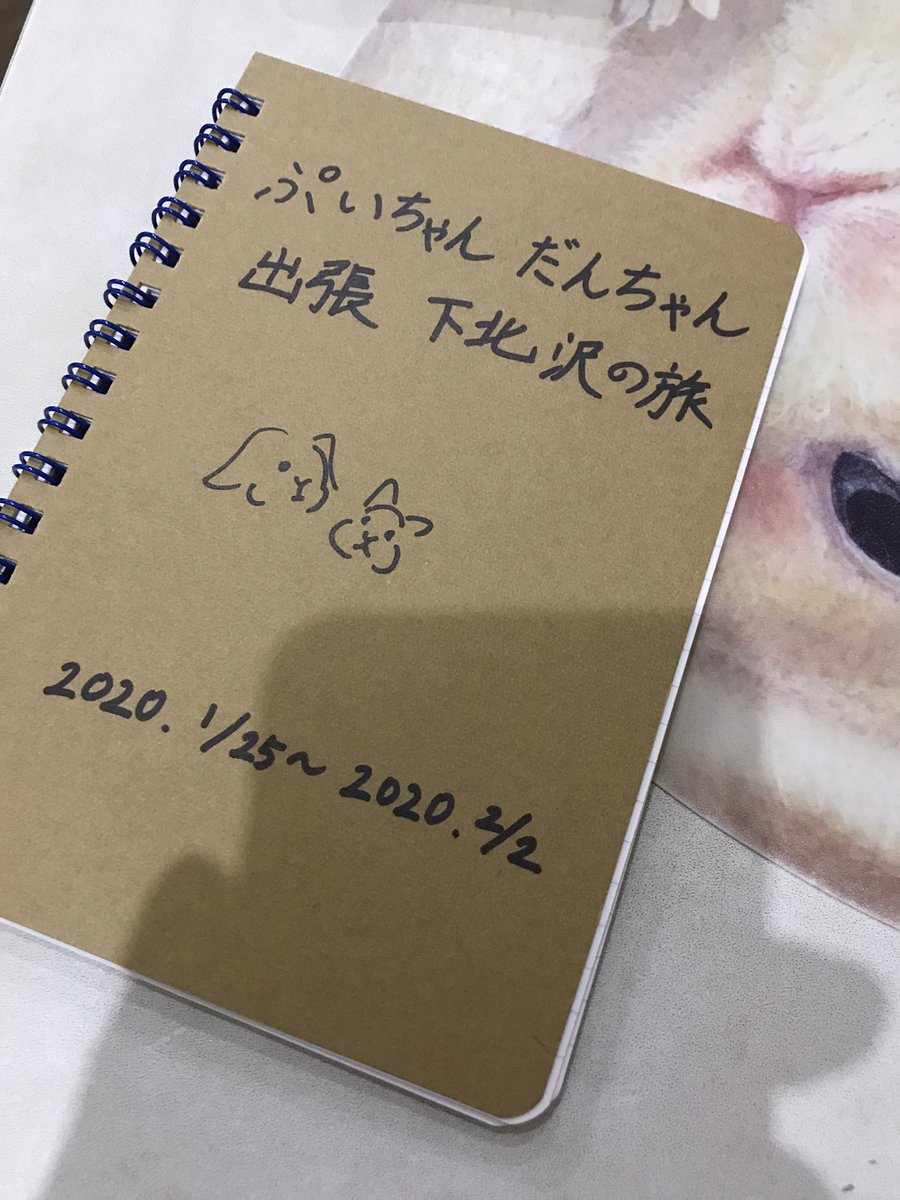 ぷいちゃん だんちゃん
出張 下北沢の旅
2020. 1/25~2020. 2/2